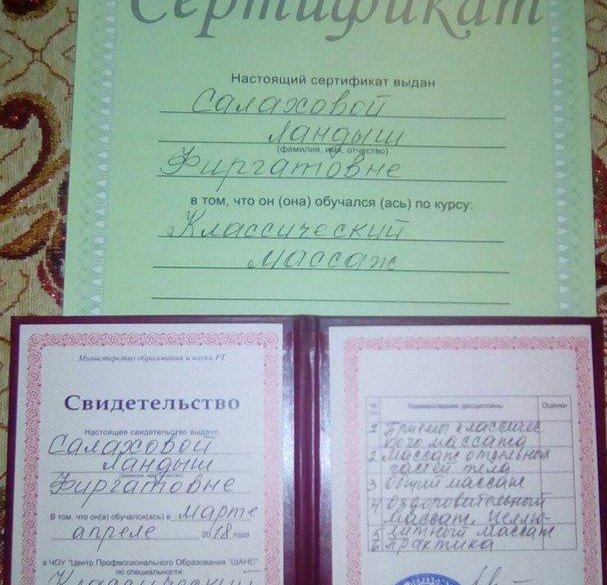 Сертификат
Настоящий сертификат выдан
Салаховой
Ландыш
(фамилия, имя, отчество)
Фиргатовне
в том, что он (она) обучался (ась) по курсу:
Классический
массаж
Министерство образования и науки РТ
Свидетельство
Настоящее свидетельство выдано
Салаховой
Ландыш
Фиргатовне
В том, что он(а) обучался(ась) в марте
апреле 2018 года
в ЧОУ "Центр Профессионального Образования "ШАНС"
по специальности:
Классический
Наименование дисциплины Оценки
1 Приемы классичес
кого массажа
2 Массаж отдельных
частей тела
3 Общий массаж
4 Оздоровительный
массаж. Целлю-
5 литный массаж
6 Практика